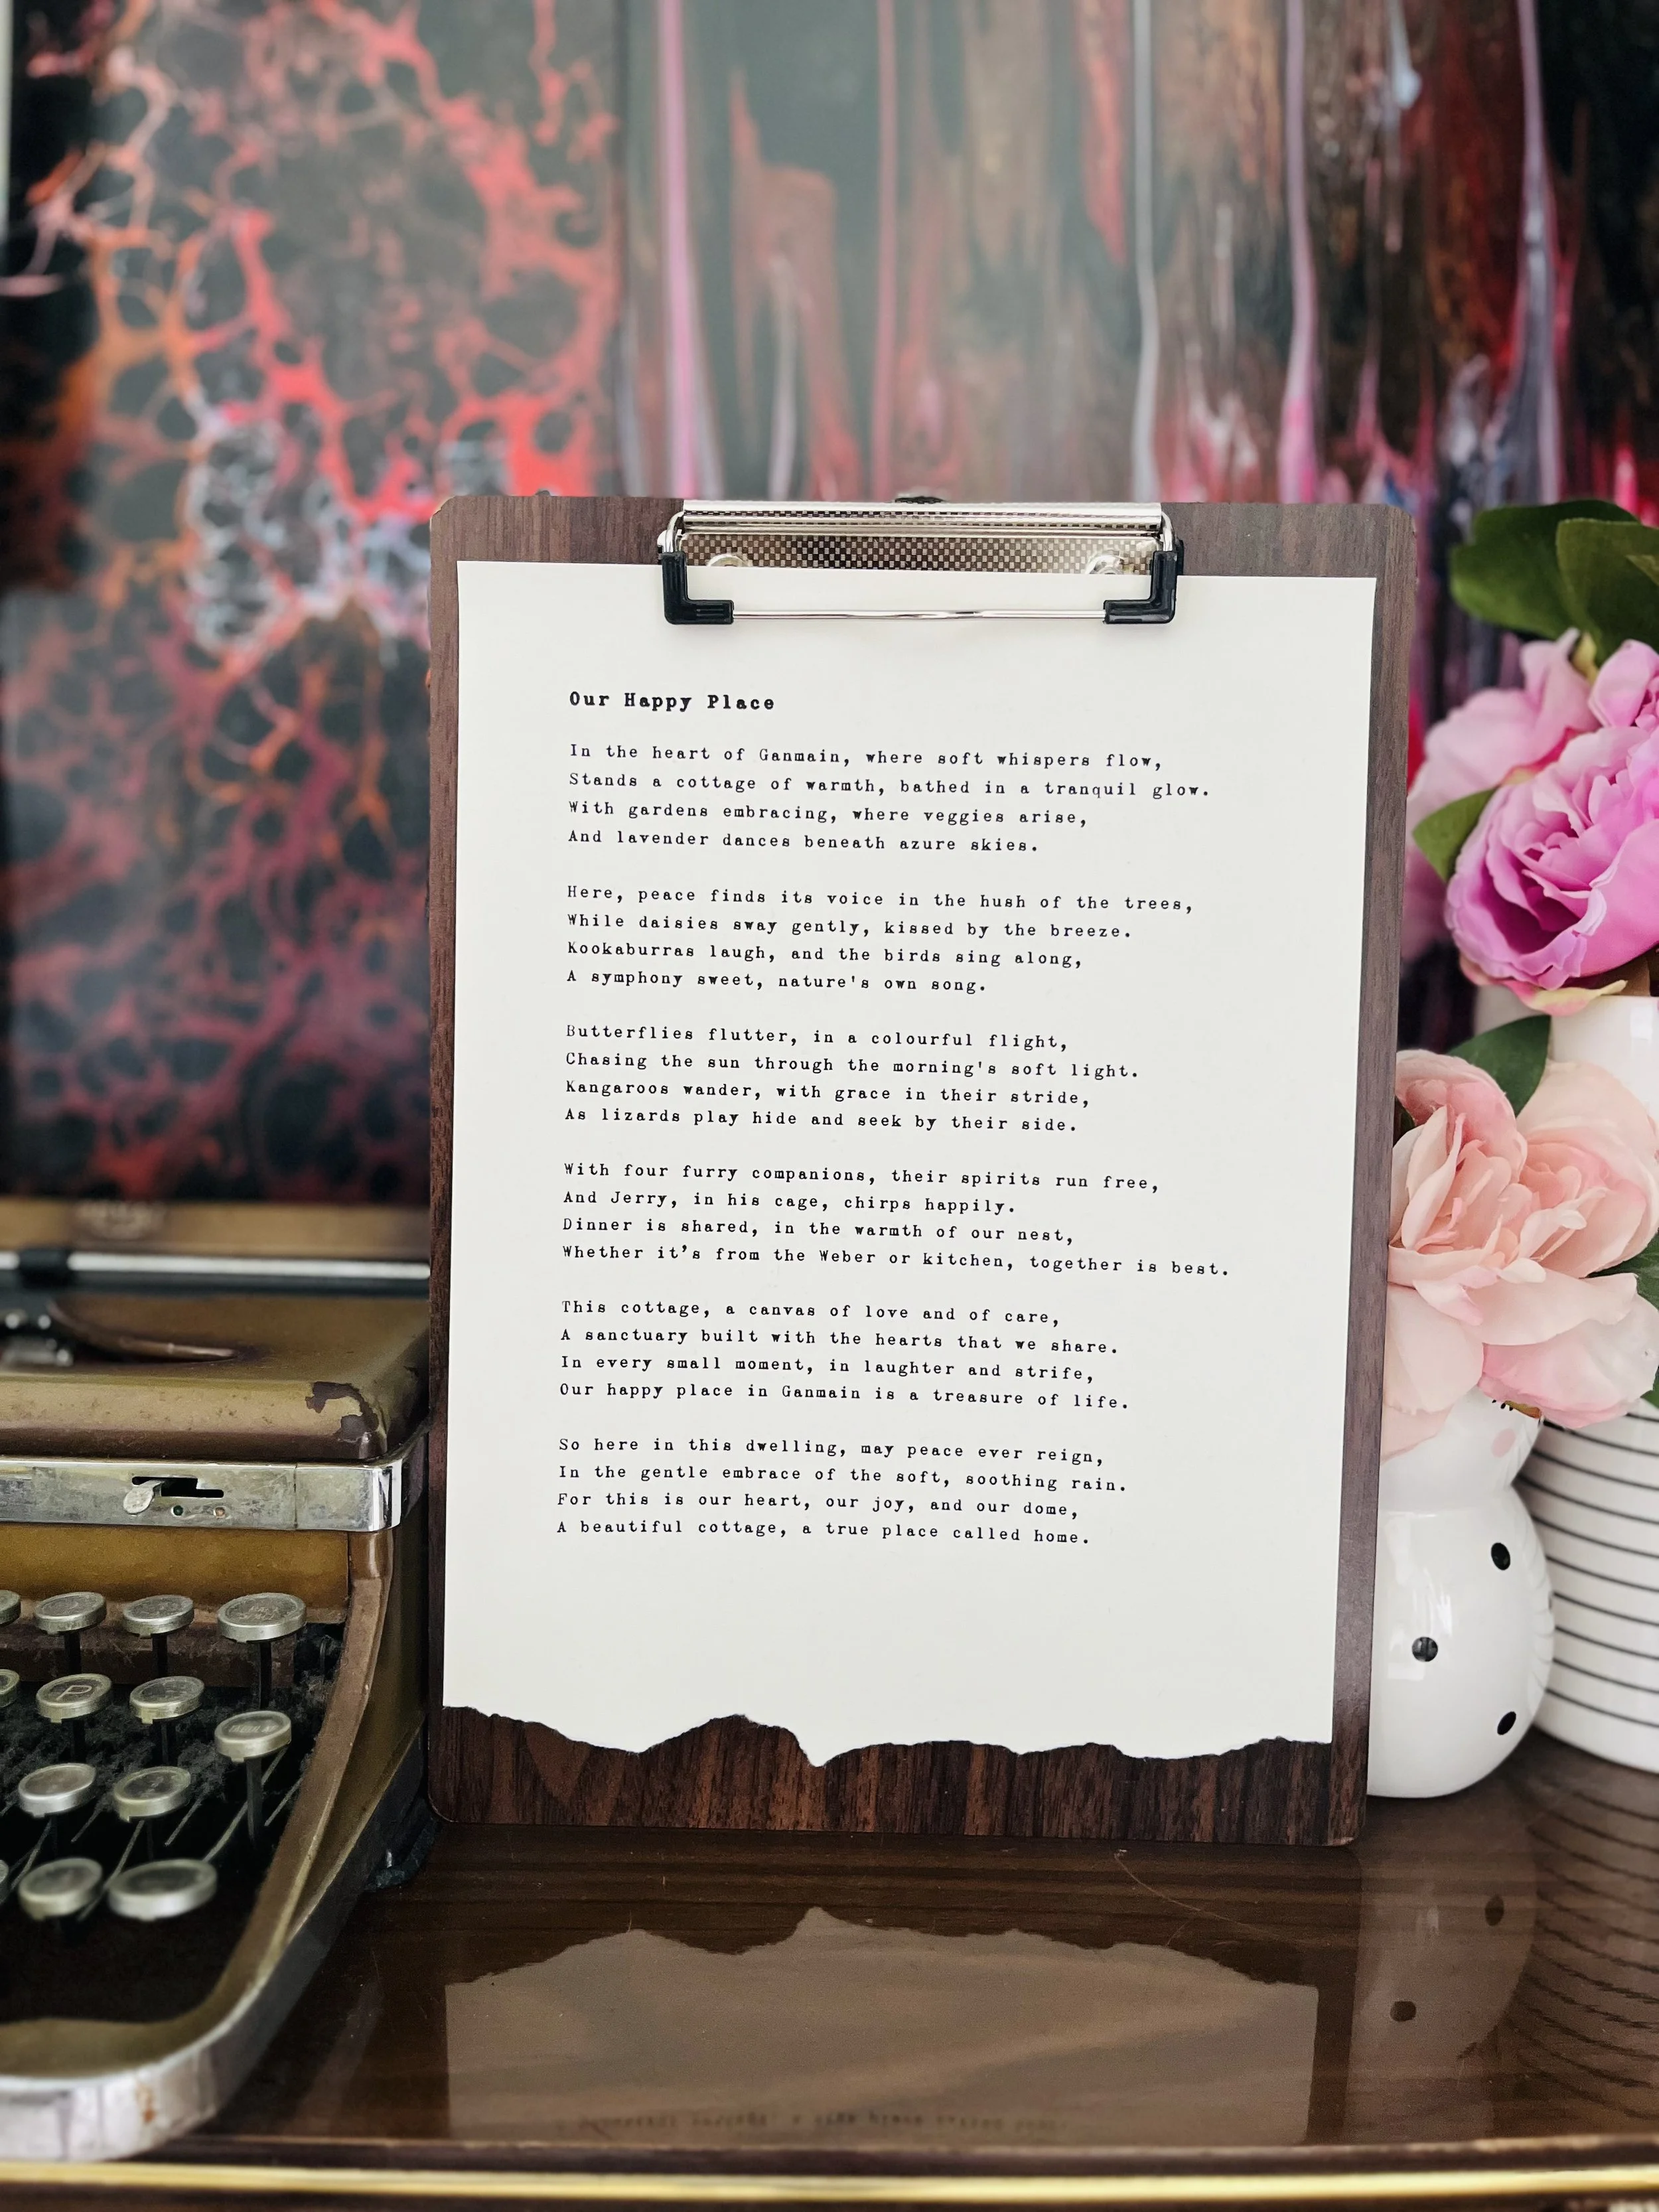 Our Happy Place
In the heart of Ganmain, where soft whispers flow,
Stands a cottage of warmth, bathed in a tranquil glow.
With gardens embracing, where veggies arise,
And lavender dances beneath azure skies.
Here, peace finds its voice in the hush of the trees,
While daisies sway gently, kissed by the breeze.
Kookaburras laugh, and the birds sing along,
A symphony sweet, nature's own song.
Butterflies flutter, in a colourful flight,
Chasing the sun through the morning's soft light.
Kangaroos wander, with grace in their stride,
As lizards play hide and seek by their side.
With four furry companions, their spirits run free,
And Jerry, in his cage, chirps happily.
Dinner is shared, in the warmth of our nest,
Whether it’s from the Weber or kitchen, together is best.
This cottage, a canvas of love and of care,
A sanctuary built with the hearts that we share.
In every small moment, in laughter and strife,
Our happy place in Ganmain is a treasure of life.
So here in this dwelling, may peace ever reign,
In the gentle embrace of the soft, soothing rain.
For this is our heart, our joy, and our dome,
A beautiful cottage, a true place called home.
P